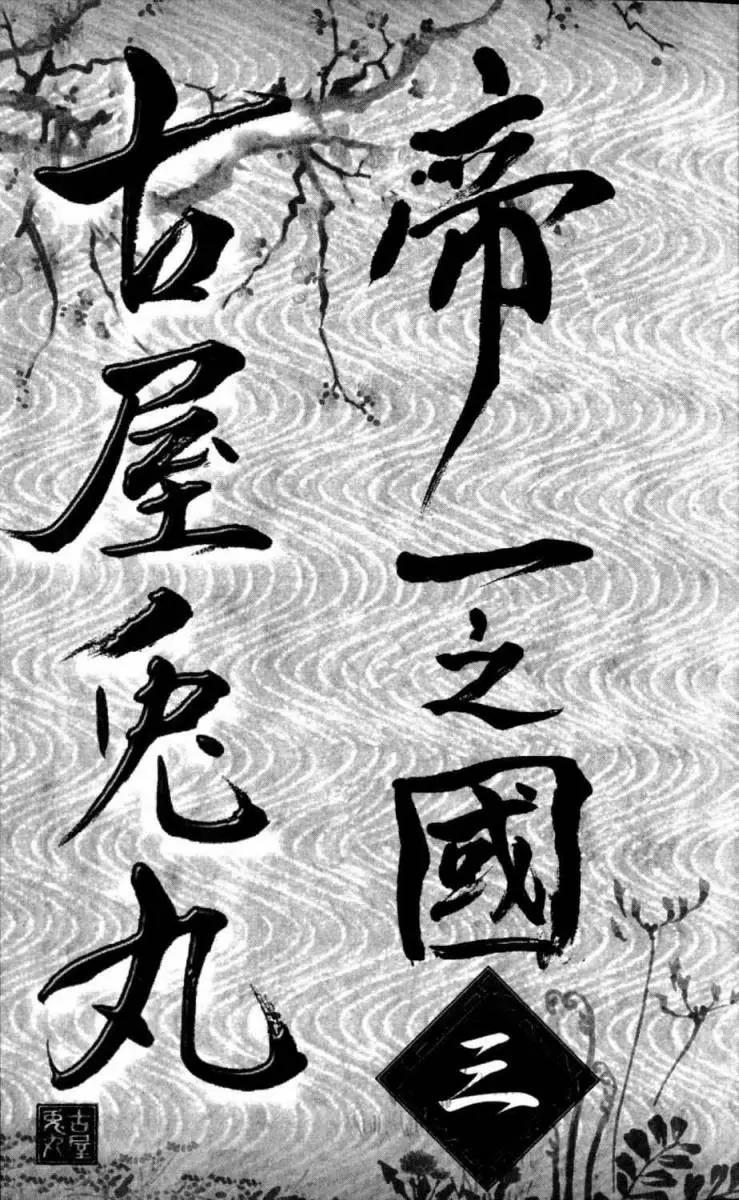 帝一之國
三
古屋兎丸
古屋
兎丸